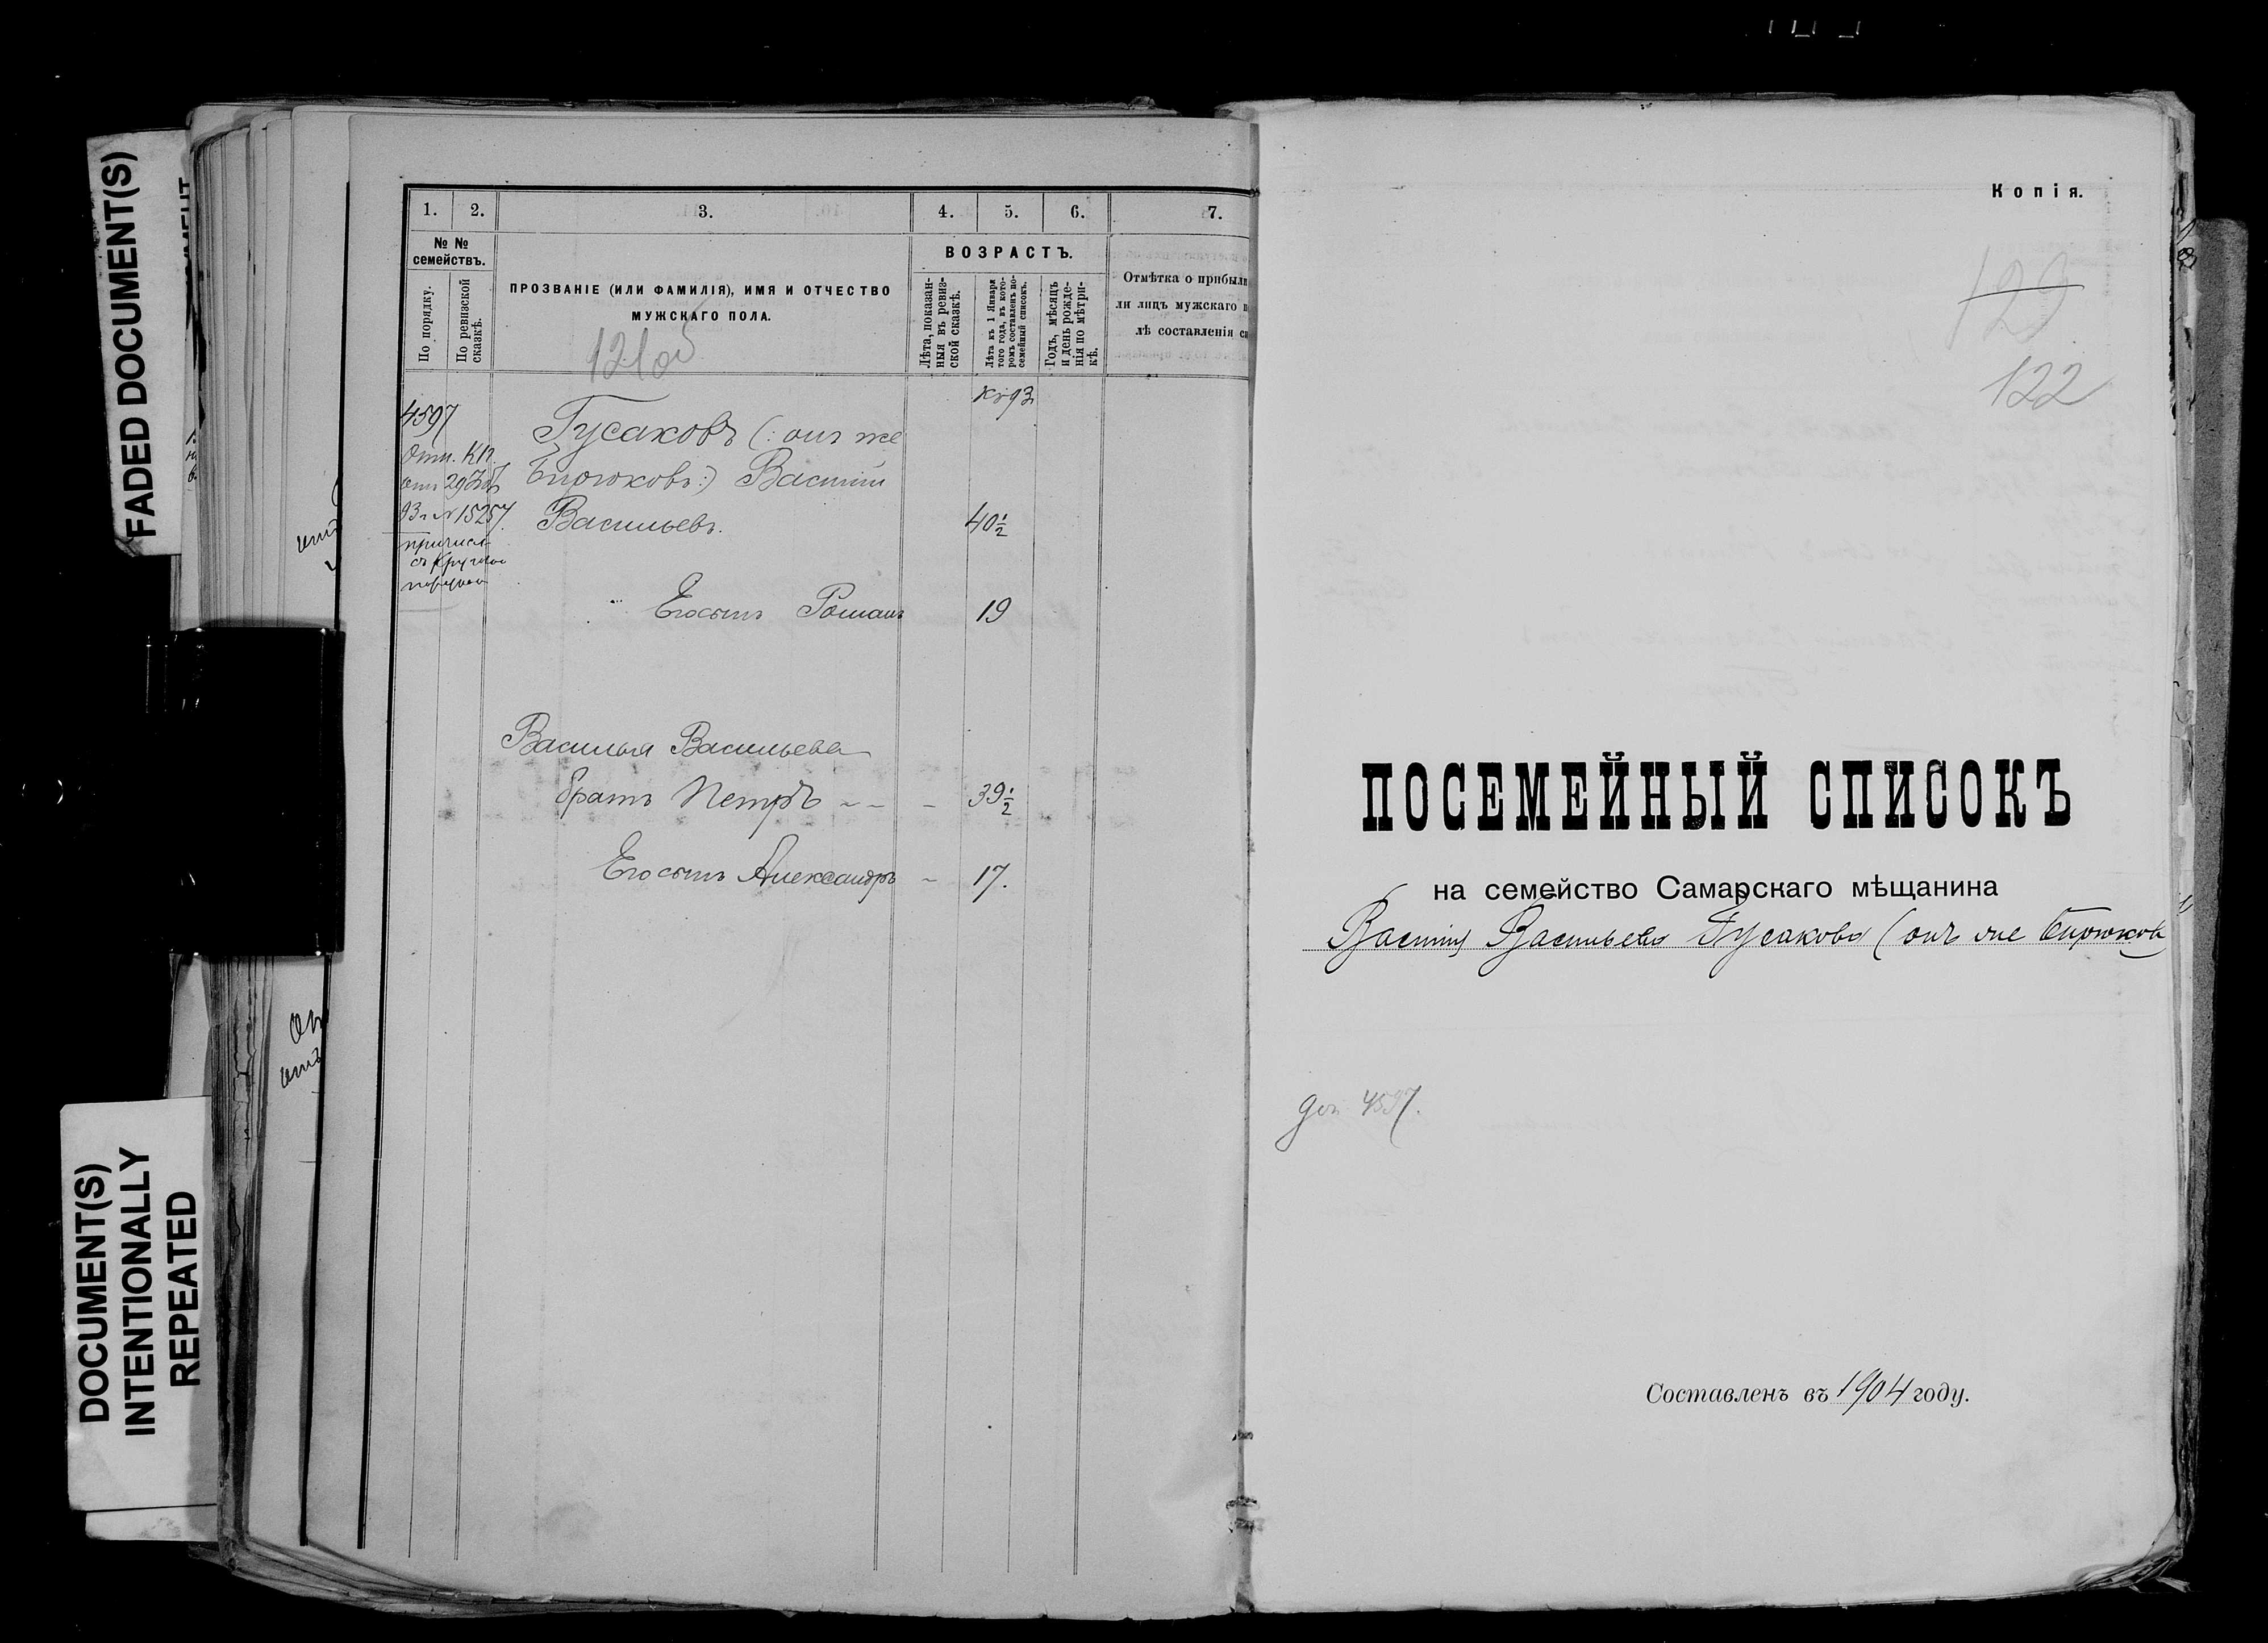 FADED DOCUMENT(S)
DOCUMENT(S)
INTENTIONALLY
REPEATED
1. 2. 3. 4. 5. 6. 7.
№ №
семействъ.
По порядку.
По ревизской
сказкѣ.
ПРОЗВАНІЕ (ИЛИ ФАМИЛІЯ), ИМЯ И ОТЧЕСТВО
МУЖСКАГО ПОЛА.
121об
ВОЗРАСТЪ.
Лѣта, показан-
ныя въ ревиз-
ской сказкѣ.
Лѣта къ 1 Января
того года, въ кото-
ромъ составленъ по-
семейный списокъ.
Годъ, мѣсяцъ
и день рожде-
нія по мѣтри-
кѣ.
Отмѣтка о прибыли
ли лицъ мужскаго
лѣ составленія
4597
93 г № 15257.
Гусаковъ (: онъ же
Бирюковъ:) Василій
Васильевъ. 40½
Его сынъ Романъ 19
Василья Васильева
братъ Петръ - - - 39½
Его сынъ Александръ - 17.
Копія.
123
122
ПОСЕМЕЙНЫЙ СПИСОКЪ
на семейство Самарскаго мѣщанина
Василія Васильева Гусакова (онъ же Бирюков
4597.
Составленъ въ 1904 году.